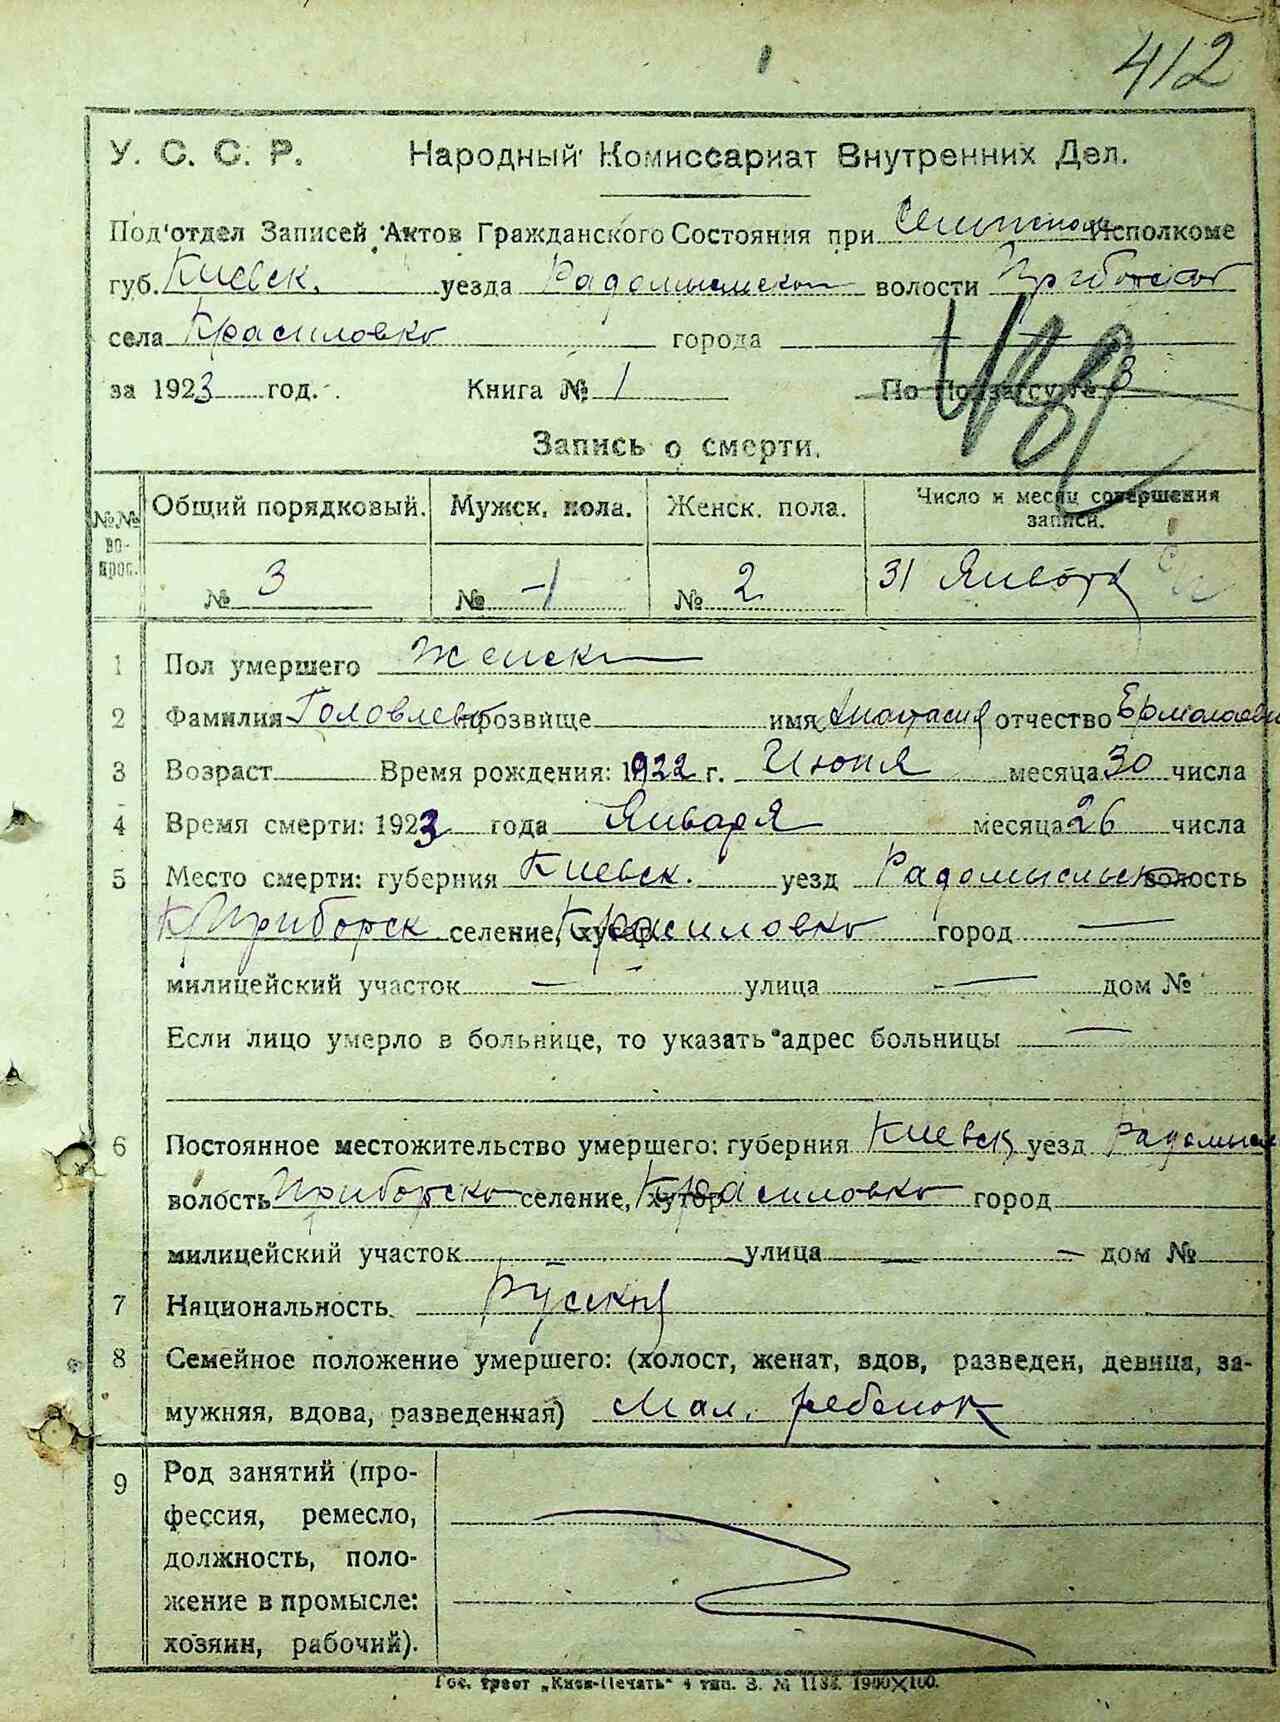 412
У. С. С. Р. Народный Комиссариат Внутренних Дел.
Под'отдел Записей Актов Гражданского Состояния при Исполкоме
губ. Киевск. уезда Радомысльском волости Приборской
села Красиловко города —
за 1923 год. Книга № 1 По 3
Запись о смерти.
№№ вопрос. Общий порядковый. Мужск. пола. Женск. пола. Число и месяц совершения записи.
№ 3 № -1 № 2 31 Января
1 Пол умершего Женск
2 Фамилия Головлева прозвище имя Анастасия отчество Ермолаевн
3 Возраст Время рождения: 1922 г. Июня месяца 30 числа
4 Время смерти: 1923 года Января месяца 26 числа
5 Место смерти: губерния Киевск. уезд Радомысльск волость
Приборск селение, хутор Красиловко город —
милицейский участок — улица — дом №
Если лицо умерло в больнице, то указать адрес больницы —
6 Постоянное местожительство умершего: губерния Киевск уезд Радомысл
волость Приборско селение, хутор Красиловко город
милицейский участок улица — — дом №
7 Национальность Русская
8 Семейное положение умершего: (холост, женат, вдов, разведен, девица, за-
мужняя, вдова, разведенная) Мал. ребенок
9 Род занятий (про-
фессия, ремесло,
должность, поло-
жение в промысле:
хозяин, рабочий).
Гос. трест „Киев-Печать" 4 тип. З. № 1134. 1900×100.